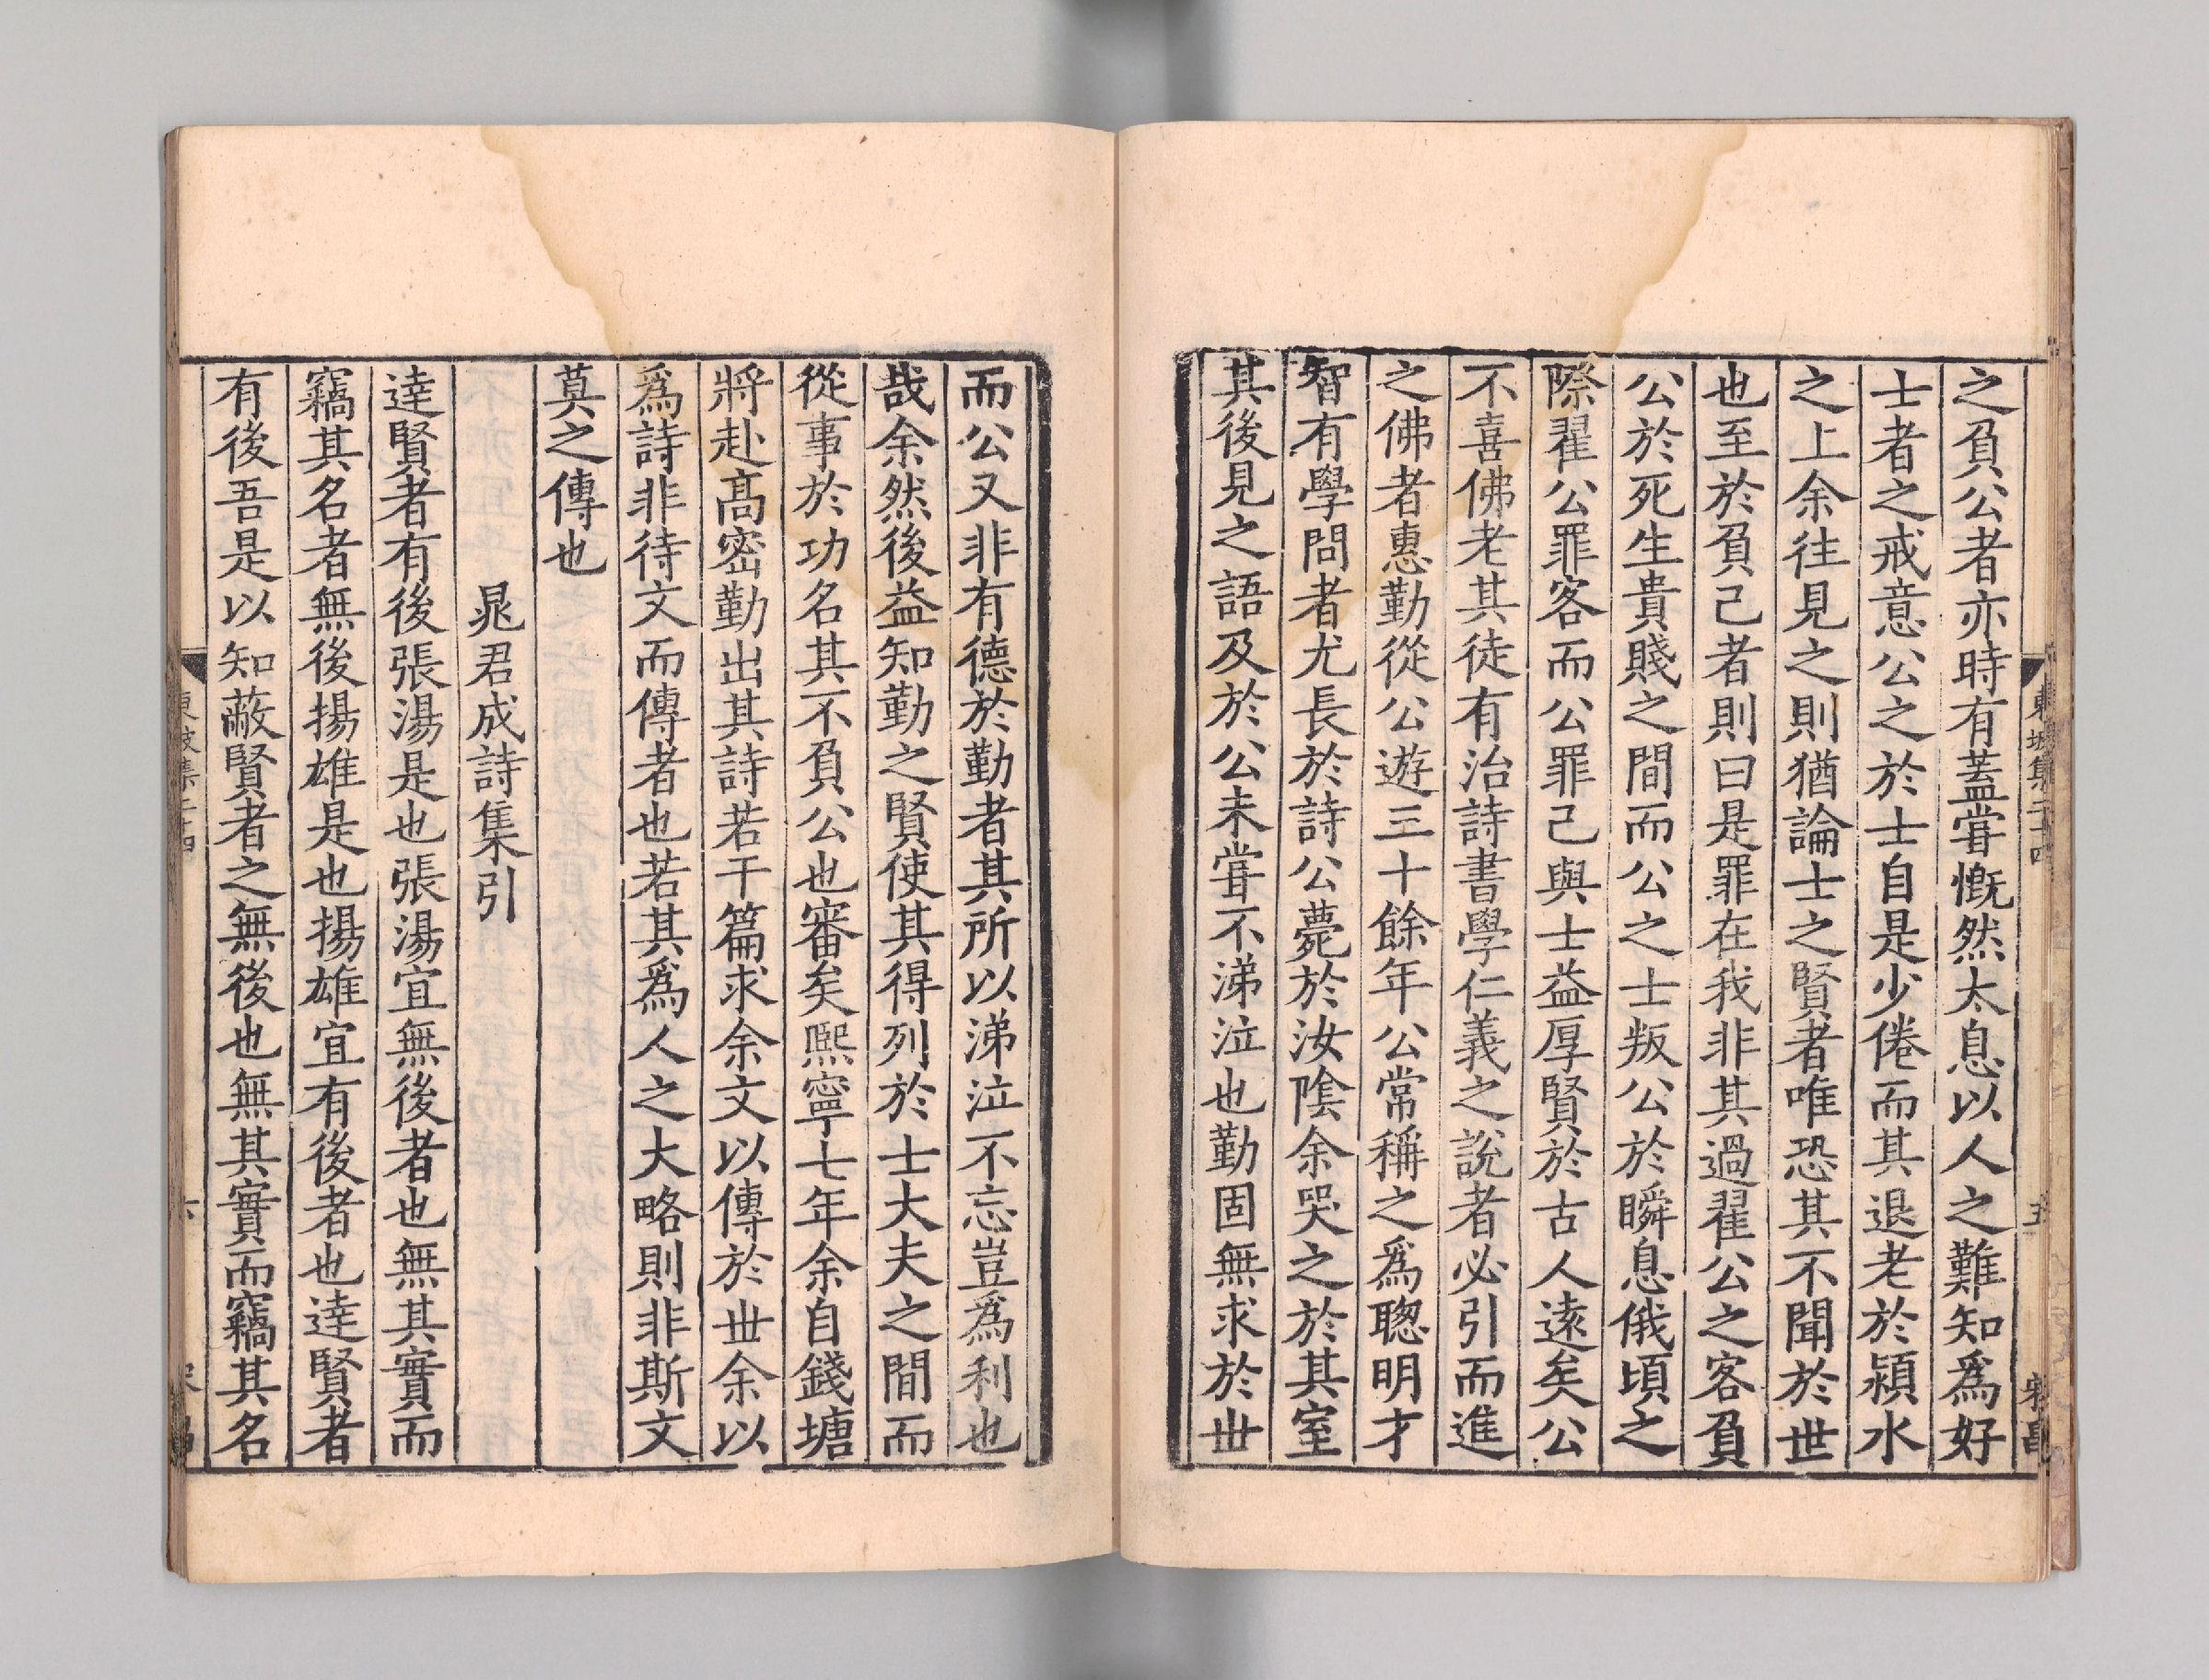 之負公者亦時有蓋甞慨然太息以人之難知爲好
士者之戒意公之於士自是少倦而其退老於潁水
之上余往見之則猶論士之賢者唯恐其不聞於世
也至於負己者則曰是罪在我非其過翟公之客負
公於死生貴賤之間而公之士叛公於瞬息俄頃之
際翟公罪客而公罪己與士益厚賢於古人遠矣公
不喜佛老其徒有治詩書學仁義之說者必引而進
之佛者惠勤從公遊三十餘年公常稱之爲聦明才
智有學問者尤長於詩公薨於汝陰余哭之於其室
其後見之語及於公未甞不涕泣也勤固無求於丗
而公又非有德於勤者其所以涕泣不忘豈爲利也
哉余然後益知勤之賢使其得列於士大夫之間而
從事於功名其不負公也審矣熈寧七年余自錢塘
將赴髙密勤出其詩若干篇求余文以傳於丗余以
爲詩非待文而傳者也若其爲人之大略則非斯文
莫之傳也
晁君成詩集引
逹賢者有後張湯是也張湯宜無後者也無其實而
竊其名者無後揚雄是也揚雄宜有後者也逹賢者
有後吾是以知蔽賢者之無後也無其實而竊其名
東坡集二十四
六